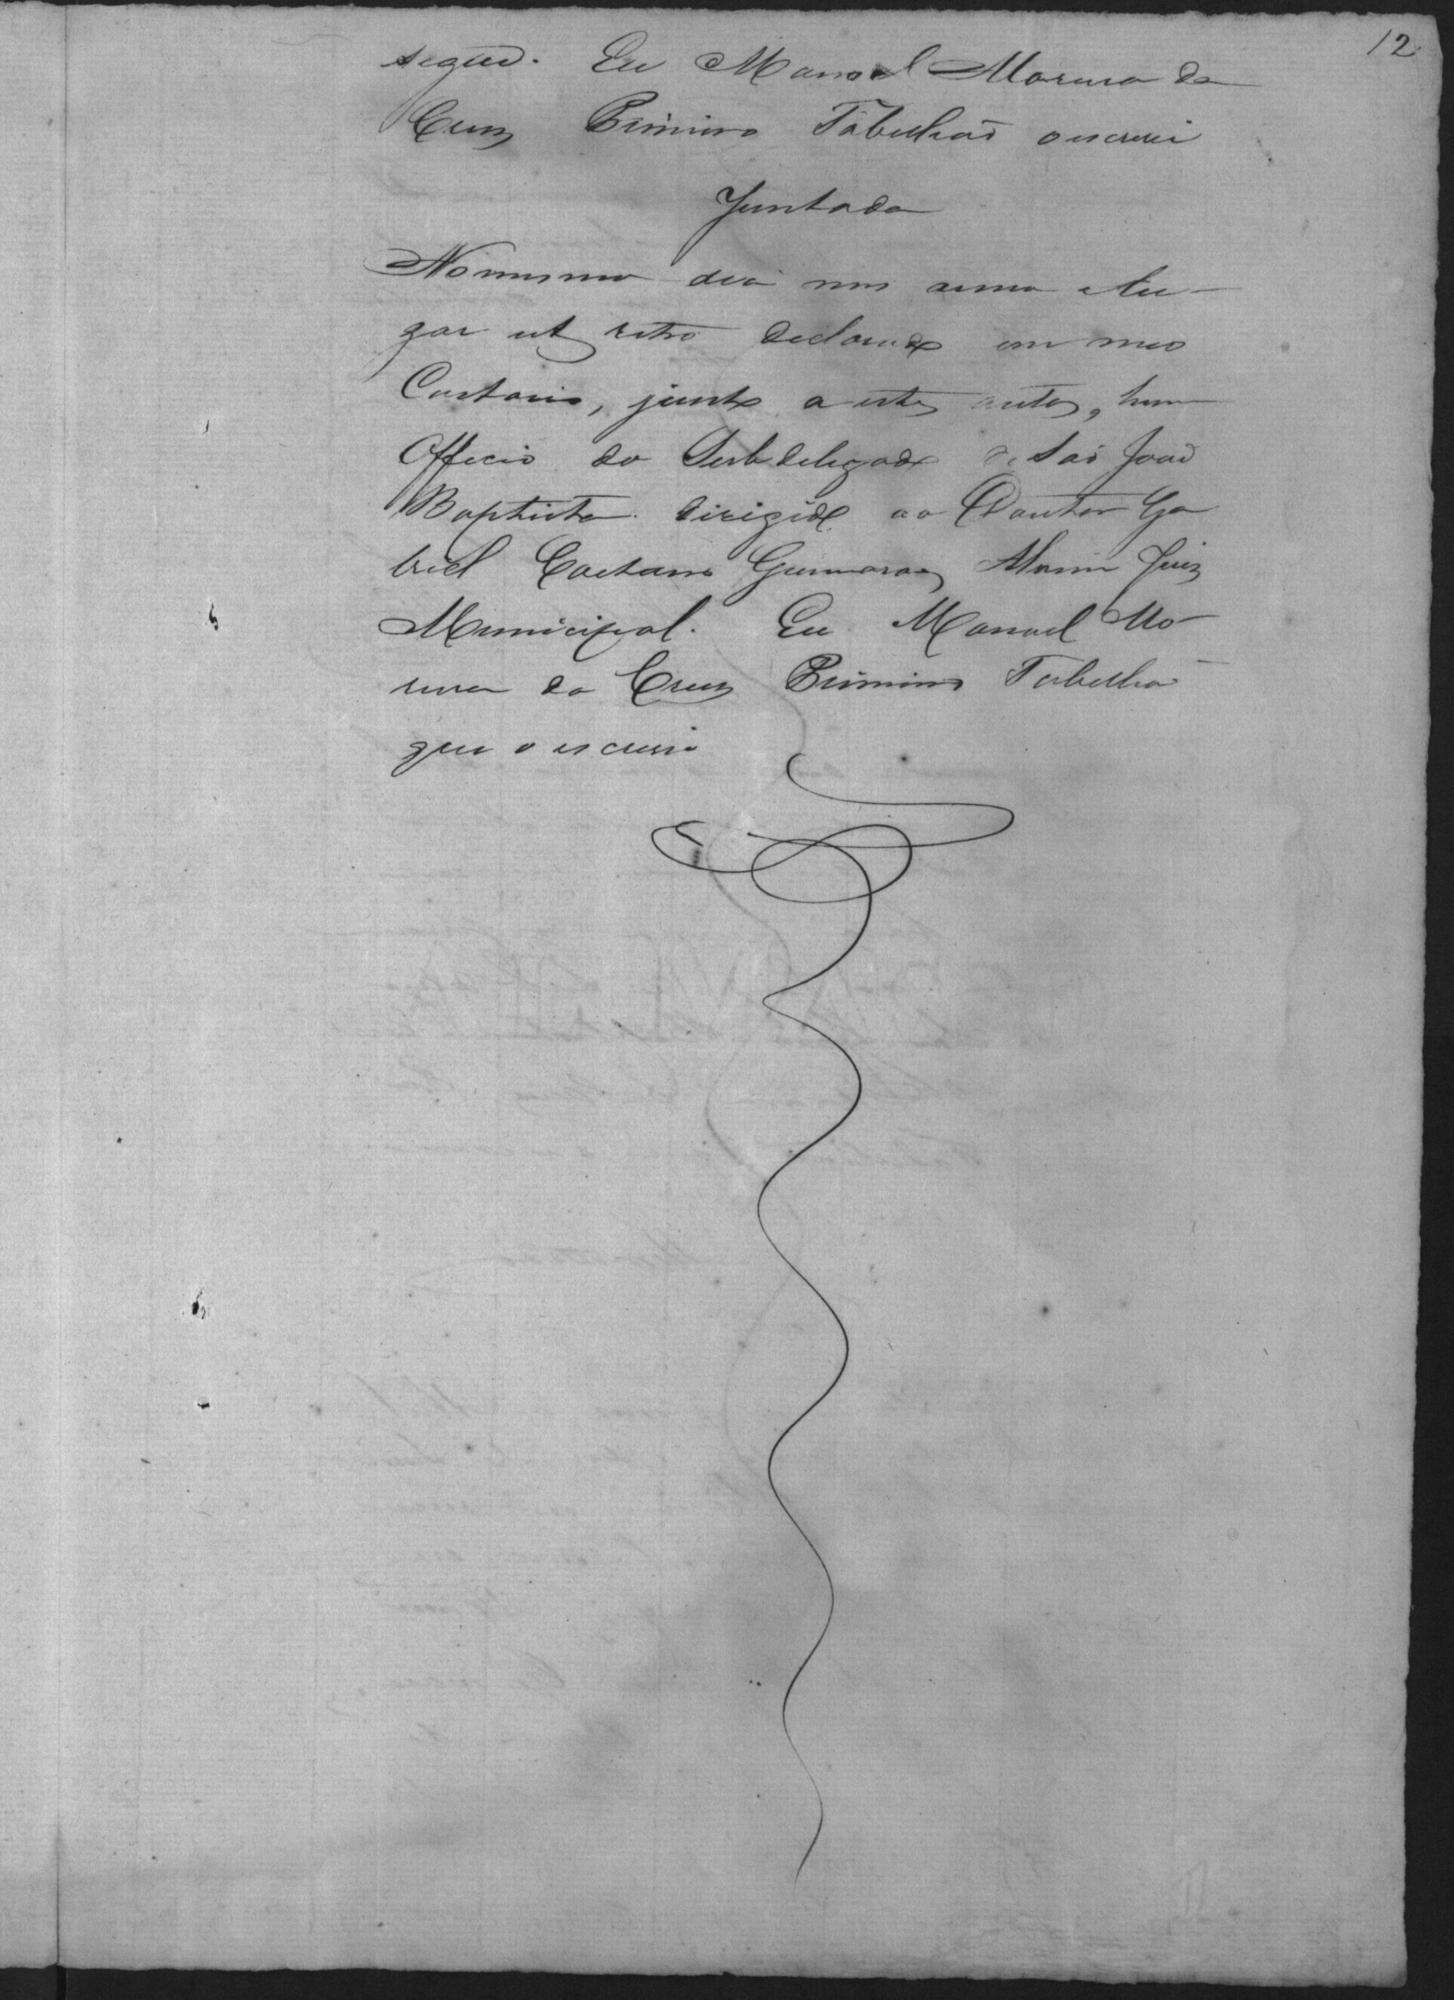 12
segue. Eu Manoel Moreira da
Cruz Primeiro Tabelião o escrevi
Juntada
No mesmo dia mes anno e lu-
gar ut retro declarado em meo
Cartorio, junto a estes autos, hum
Officio do Subdelegado de São João
Baptista dirigido ao Doutor Ga
briel Caetano Guimarães Juiz
Municipal. Eu Manoel Mo-
reira da Cruz Primeiro Tabelião
que o escrevi